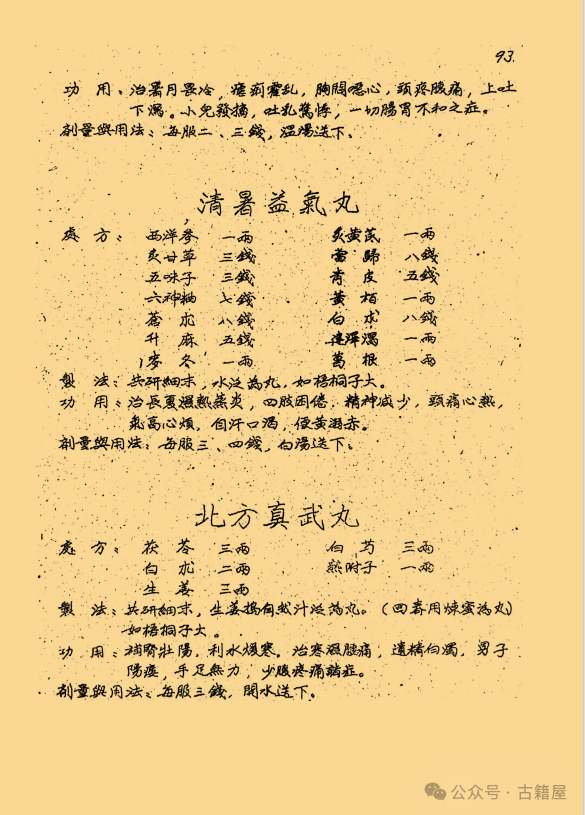 93.
功 用：治暑月畏冷，瘧痢霍乱，胸悶噁心，頭疼腹痛，上吐
下瀉。小兒發搐，吐乳驚悸，一切腸胃不和之症。
剂量與用法：每服二、三錢，溫湯送下。
清暑益氣丸
處 方： 西洋參 一兩 炙黃芪 一兩
炙甘草 三錢 當 歸 八錢
五味子 三錢 青 皮 五錢
六神柚 七錢 黃 栢 一兩
蒼 朮 八錢 白 朮 八錢
升 麻 五錢 建澤瀉 一兩
麥 冬 一兩 葛 根 一兩
製 法：共研細末，水泛為丸，如梧桐子大。
功 用：治長夏濕熱蒸炎，四肢困倦，精神减少，頭痛心熱，
氣高心煩，自汗口渴，便黃溺赤。
剂量與用法：每服三、四錢，白湯送下。
北方真武丸
處 方： 茯 苓 三兩 白 芍 三兩
白 朮 二兩 熟附子 一兩
生 姜 三兩
製 法：共研細末，生姜搗自然汁泛為丸。（四春用煉蜜為丸）
如梧桐子大。
功 用：補腎壯陽，利水煖寒。治寒濕腿痛，遺精白濁，男子
陽痿，手足無力，少腹疼痛諸症。
剂量與用法：每服三錢，開水送下。
公众号 · 古籍屋